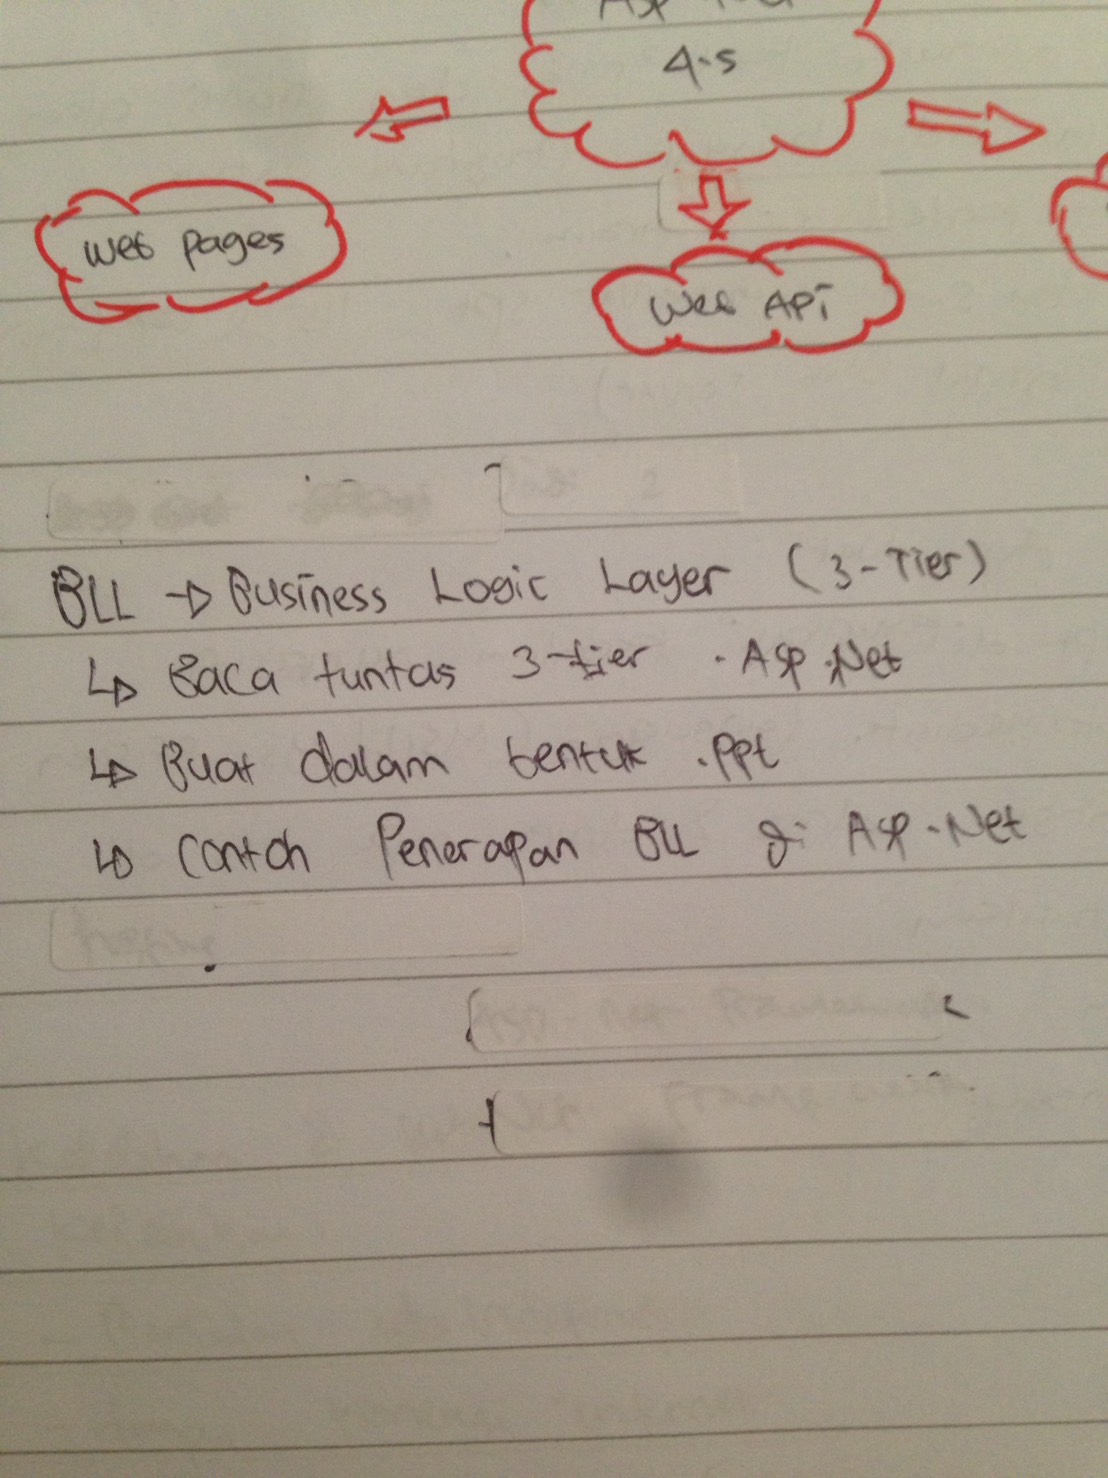 Asp
4.5
Web Pages
Web API
BLL → Business Logic Layer (3-Tier)
↳ Baca tuntas 3-tier . Asp.Net
↳ Buat dalam bentuk .ppt
↳ Contoh Penerapan BLL di Asp.Net